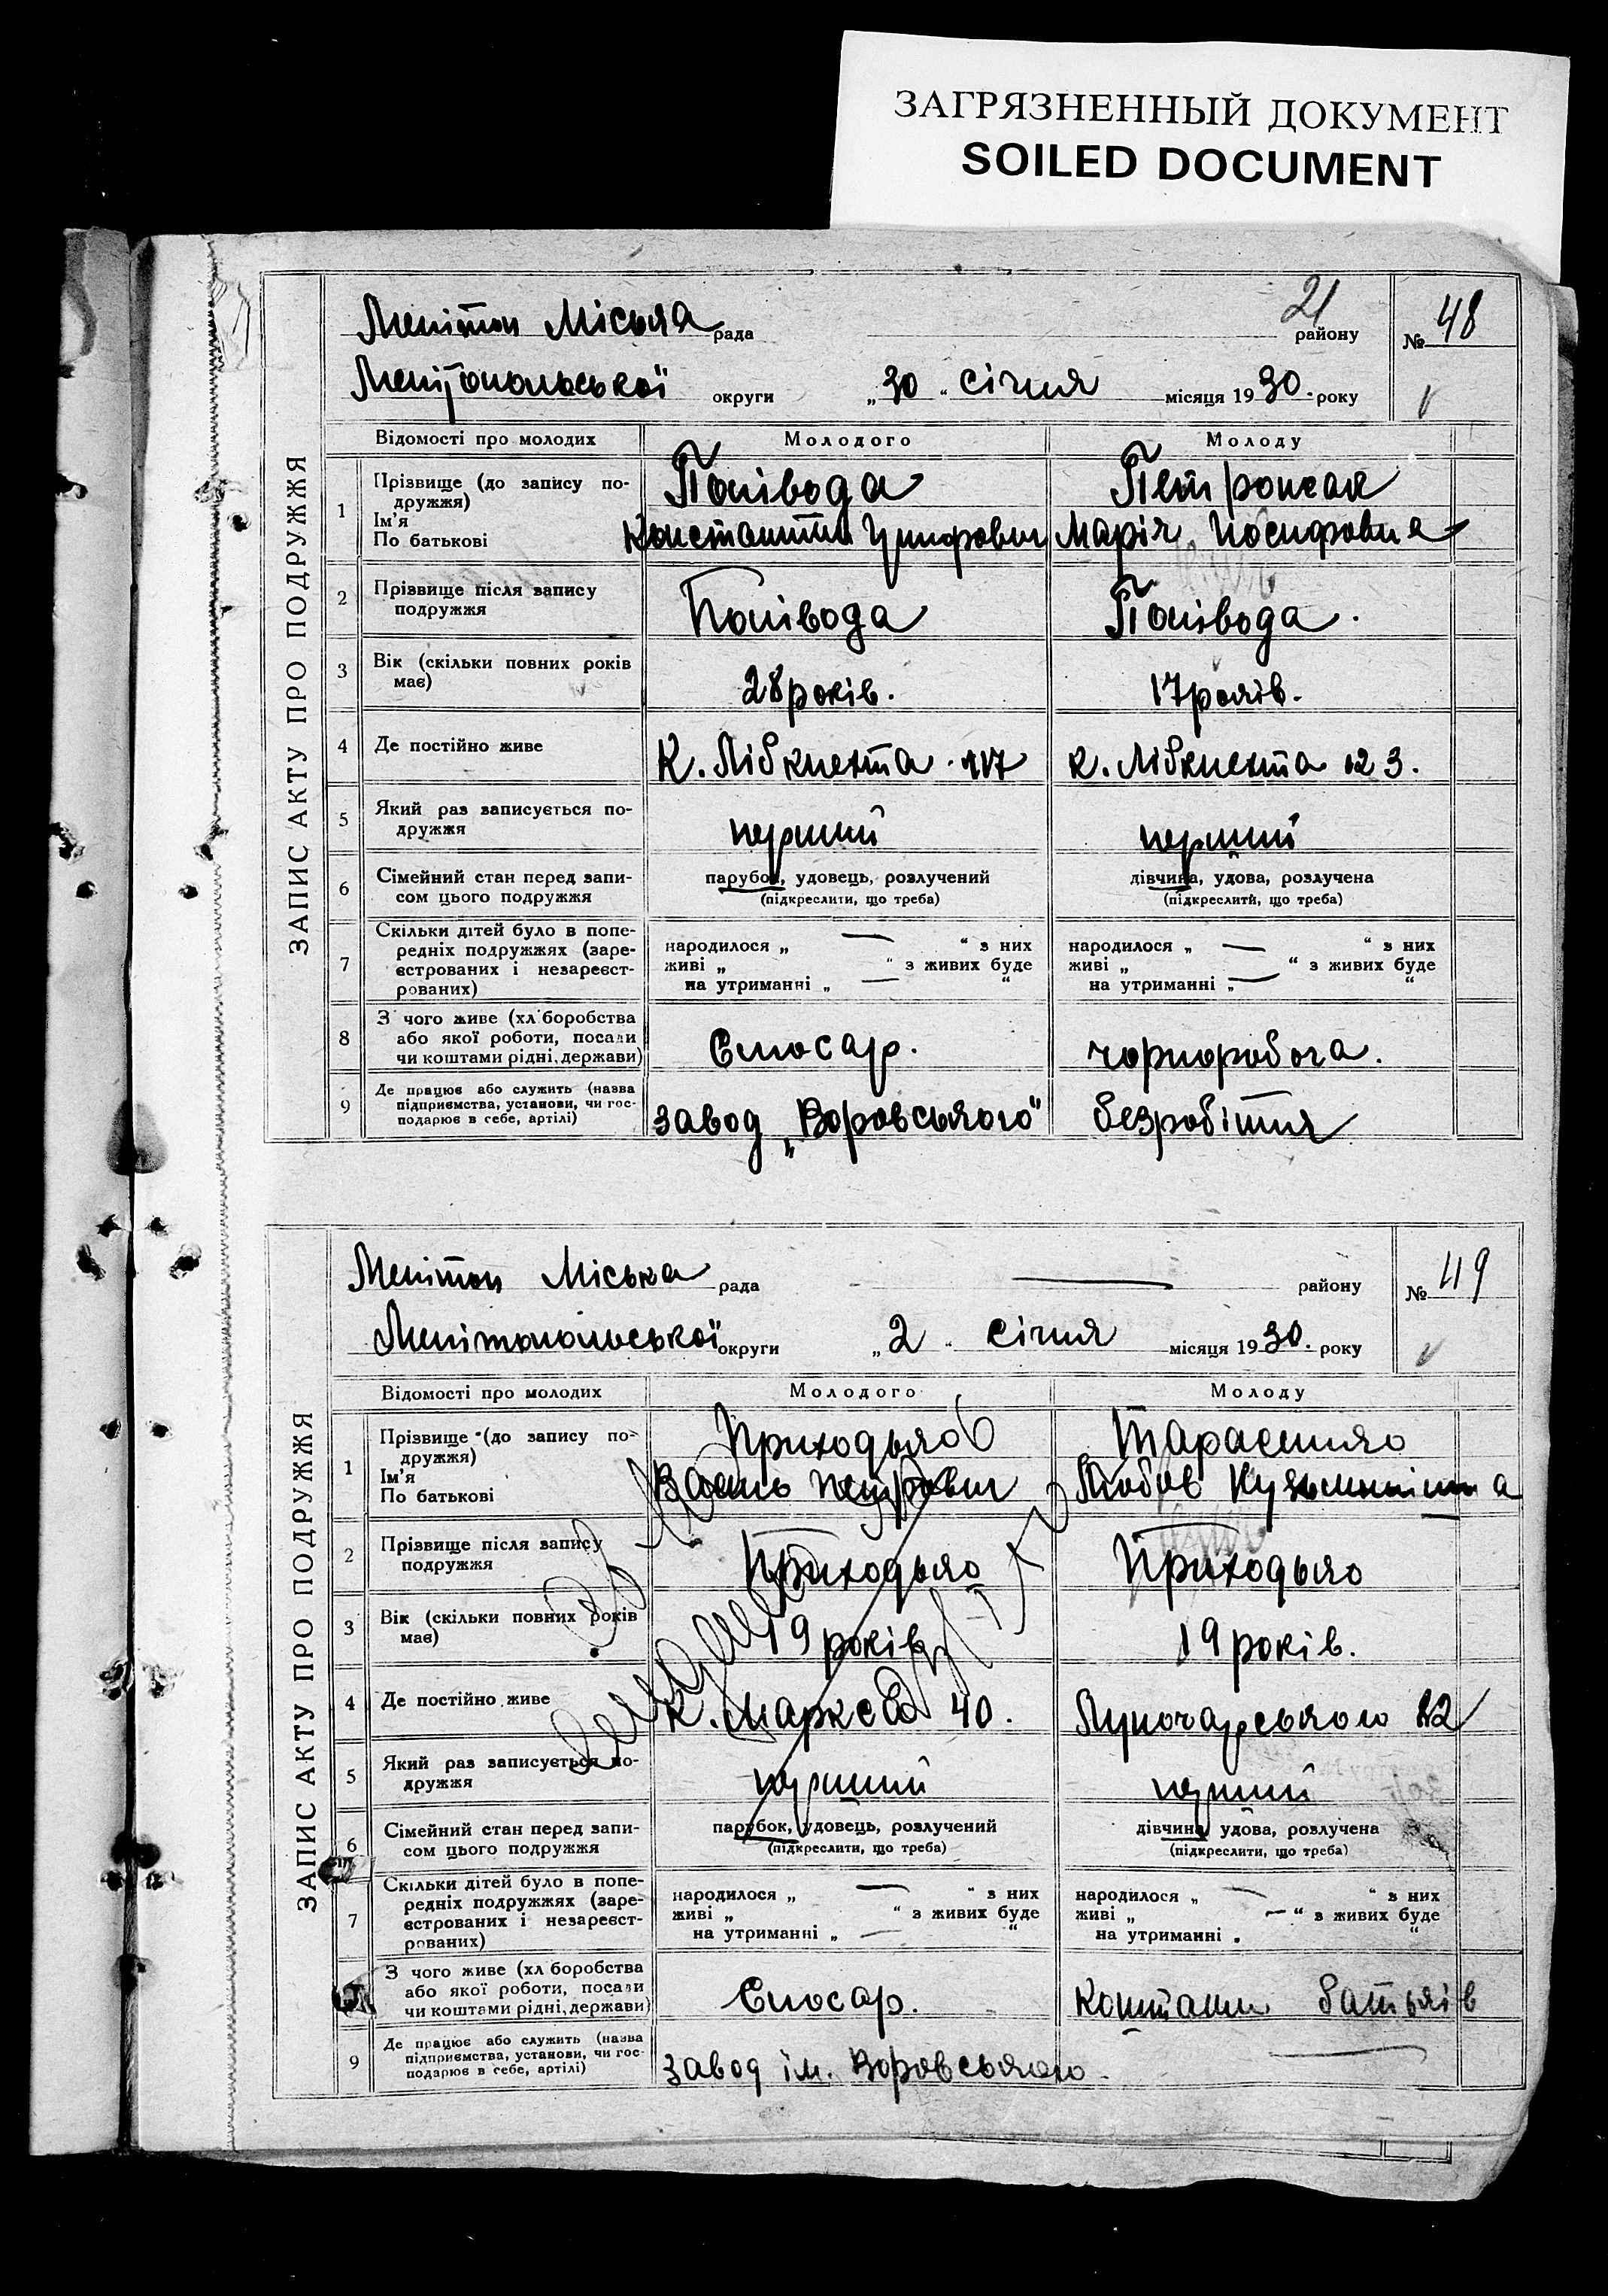 ЗАГРЯЗНЕННЫЙ ДОКУМЕНТ
SOILED DOCUMENT
21
ЗАПИС АКТУ ПРО ПОДРУЖЖЯ
Мелітоп Міська рада району № 48
Мелітопольської округи „30“ січня місяця 1930. року
Відомості про молодих Молодого Молоду
1 Прізвище (до запису по-
дружжя)
Ім’я
По батькові
Полівода
Константин
Петронсая
Марія Йосифовна
2 Прізвище після запису
подружжя
Полівода Полівода.
3 Вік (скільки повних років
має)
28 років. 17 років.
4 Де постійно живе К. Лібкнехта 117 К. Лібкнехта 123.
5 Який раз записується по-
дружжя
перший перший
6 Сімейний стан перед запи-
сом цього подружжя
парубок, удовець, розлучений
(підкреслити, що треба)
дівчина, удова, розлучена
(підкреслити, що треба)
7 Скільки дітей було в попе-
редніх подружжях (заре-
єстрованих і незареєст-
рованих)
народилося „ — “ з них
живі „ “ з живих буде
на утриманні „ — “
народилося „ — “ з них
живі „ “ з живих буде
на утриманні „ — “
8 З чого живе (хл боробства
або якої роботи, посади
чи коштами рідні, держави)
Слюсар. чорноробоча.
9 Де працює або служить (назва
підприємства, установи, чи гос-
подарює в себе, артілі)
завод „Воровського“ безробітня
ЗАПИС АКТУ ПРО ПОДРУЖЖЯ
Мелітоп Міська рада — району № 49
Мелітопольської округи „2“ січня місяця 1930. року
Відомості про молодих Молодого Молоду
1 Прізвище (до запису по-
дружжя)
Ім’я
По батькові
Приходько
Василь Петрович
Тарасенко
Любов
2 Прізвище після запису
подружжя
Приходько Приходько
3 Вік (скільки повних років
має)
19 років 19 років.
4 Де постійно живе К. Маркса 40. Луночарського 82
5 Який раз записується по-
дружжя
перший перший
6 Сімейний стан перед запи-
сом цього подружжя
парубок, удовець, розлучений
(підкреслити, що треба)
дівчина, удова, розлучена
(підкреслити, що треба)
7 Скільки дітей було в попе-
редніх подружжях (заре-
єстрованих і незареєст-
рованих)
народилося „ — “ з них
живі „ “ з живих буде
на утриманні „ — “
народилося „ — “ з них
живі „ — “ з живих буде
на утриманні „ “
З чого живе (хл боробства
або якої роботи, посади
чи коштами рідні, держави)
Слюсар. Коштами батьків
9 Де працює або служить (назва
підприємства, установи, чи гос-
подарює в себе, артілі)
завод ім. Воровського. —